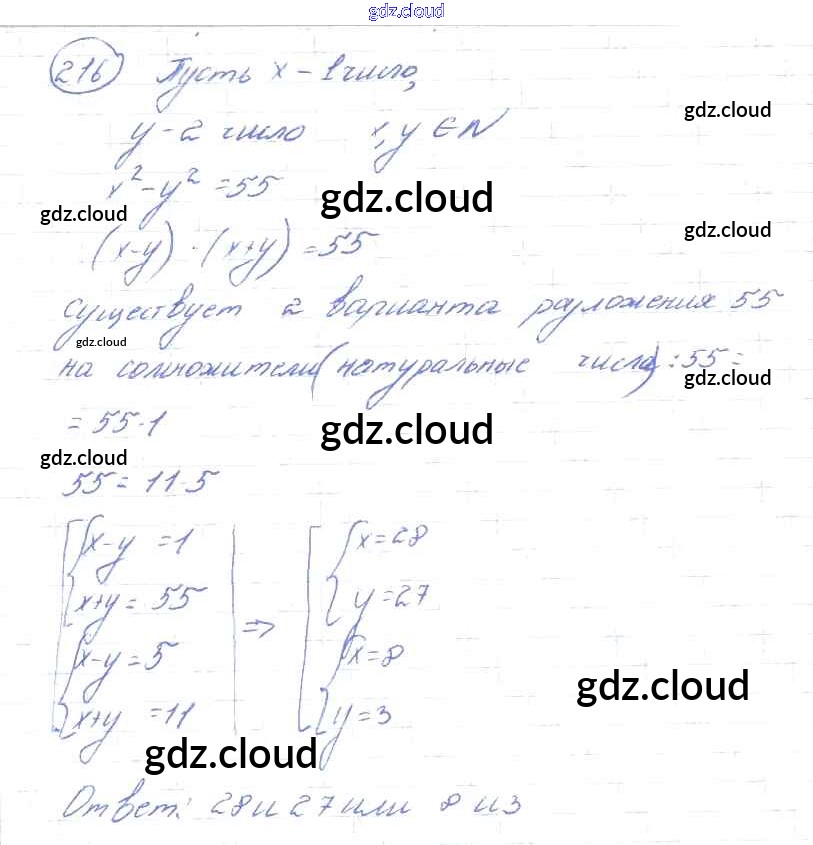 gdz.cloud
216 Пусть x - 1 число,
gdz.cloud
y - 2 число x, y ∈ N
x² - y² = 55
gdz.cloud
gdz.cloud
gdz.cloud
(x-y) · (x+y) = 55
существует 2 варианта разложения 55
gdz.cloud
на сомножители (натуральные числа) : 55 =
gdz.cloud
= 55·1
gdz.cloud
gdz.cloud
55 = 11·5
x-y = 1 x = 28
x+y = 55 y = 27
=>
x-y = 5 x = 8
gdz.cloud
x+y = 11 y = 3
gdz.cloud
Ответ: 28 и 27 или 8 и 3